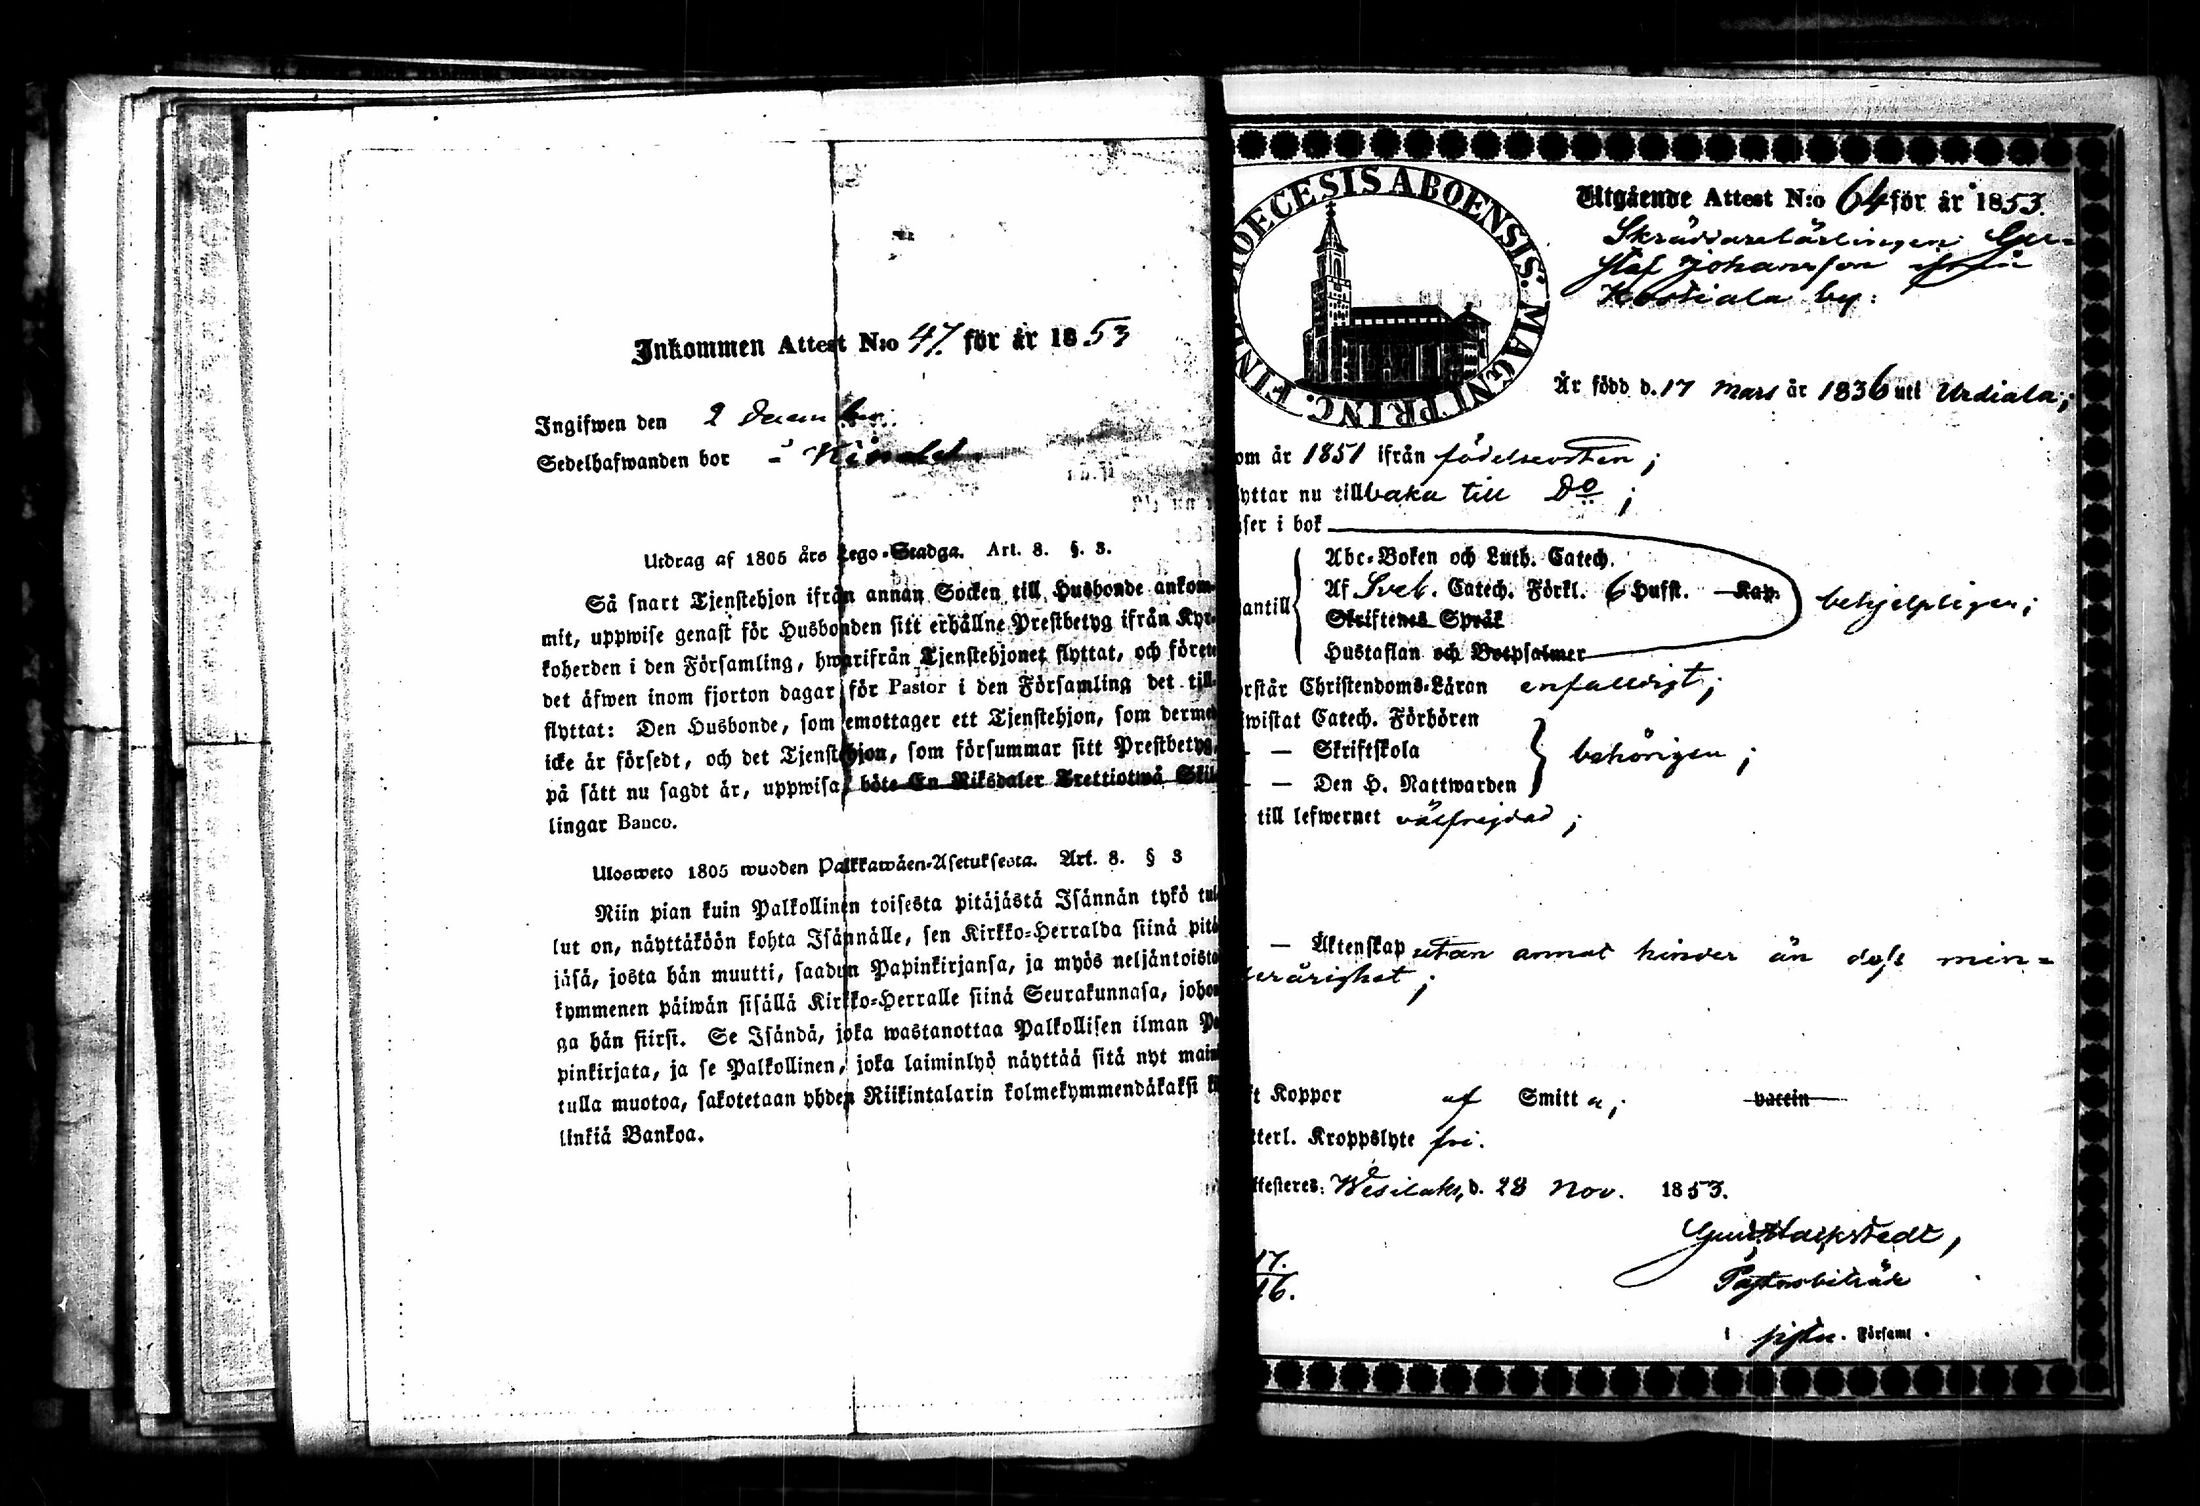 Inkommen Attest N:o 47. för år 1853
Ingifwen den 2 December
Sedelhafwanden bor i
Utdrag af 1805 års Lego-Stadga. Art. 8. §. 3.
Så snart Tjenstehjon ifrån annan Socken till Husbonde ankom-
mit, uppwise genast för Husbonden sitt erhållne Prestbetyg ifrån Kyr-
koherden i den Församling, hwarifrån Tjenstehjonet flyttat, och förete
det äfwen inom fjorton dagar för Pastor i den Församling det till-
flyttat: Den Husbonde, som emottager ett Tjenstehjon, som dermed
icke är försedt, och det Tjenstehjon, som försummar sitt Prestbetyg,
på sätt nu sagdt är, uppwisa, böte En Riksdaler Trettiotwå Skil-
lingar Banco.
Ulosweto 1805 wuoden Palkkawäen-Asetuksesta. Art. 8. § 3
Niin pian kuin Palkollinen toisesta pitäjästä Isännän tykö tul-
lut on, näyttäköön kohta Isännälle, sen Kirkko-Herralda siinä pitä-
jäsä, josta hän muutti, saadun Papinkirjansa, ja myös neljäntoista-
kymmenen päiwän sisällä Kirkko-Herralle siinä Seurakunnasa, johon-
ga hän siirsi. Se Isändä, joka wastanottaa Palkollisen ilman Pa-
pinkirjata, ja se Palkollinen, joka laiminlyö näyttää sitä nyt maini-
tulla muotoa, sakotetaan yhden Riikintalarin kolmekymmendäkaksi ki
linkiä Bankoa.
DIOECESIS ABOENSIS. MAGNI PRINC. FINL
Utgående Attest N:o 64 för år 1853.
Skräddarelärlingen Gu-
staf Johansson ifrån
by:
Är född d. 17 Mars år 1836 uti Urdiala;
om år 1851 ifrån födelseorten;
yttar nu tillbaka till Do;
äser i bok
antill
Abc-Boken och Luth. Catech.
Af Sveb. Catech. Förkl. 6 Hufst. Kap.
Skriftenes Språk
Hustaflan och Botpsalmer
behjelpligen;
örstår Christendoms-Läran enfaldigt;
iwistat Catech. Förhören
— — Skriftskola
— — Den H. Nattwarden
behörigen;
till lefwernet välfrejdad;
— — Äktenskap utan annat hinder än dess min-
derårighet;
ft Koppor af Smitta; vaccin
tterl. Kroppslyte fri.
ttesteres: Wesilaks, d. 28 Nov. 1853.
17.
16.
Gust. Hackstedt,
Pastorsbiträde
i Församl.